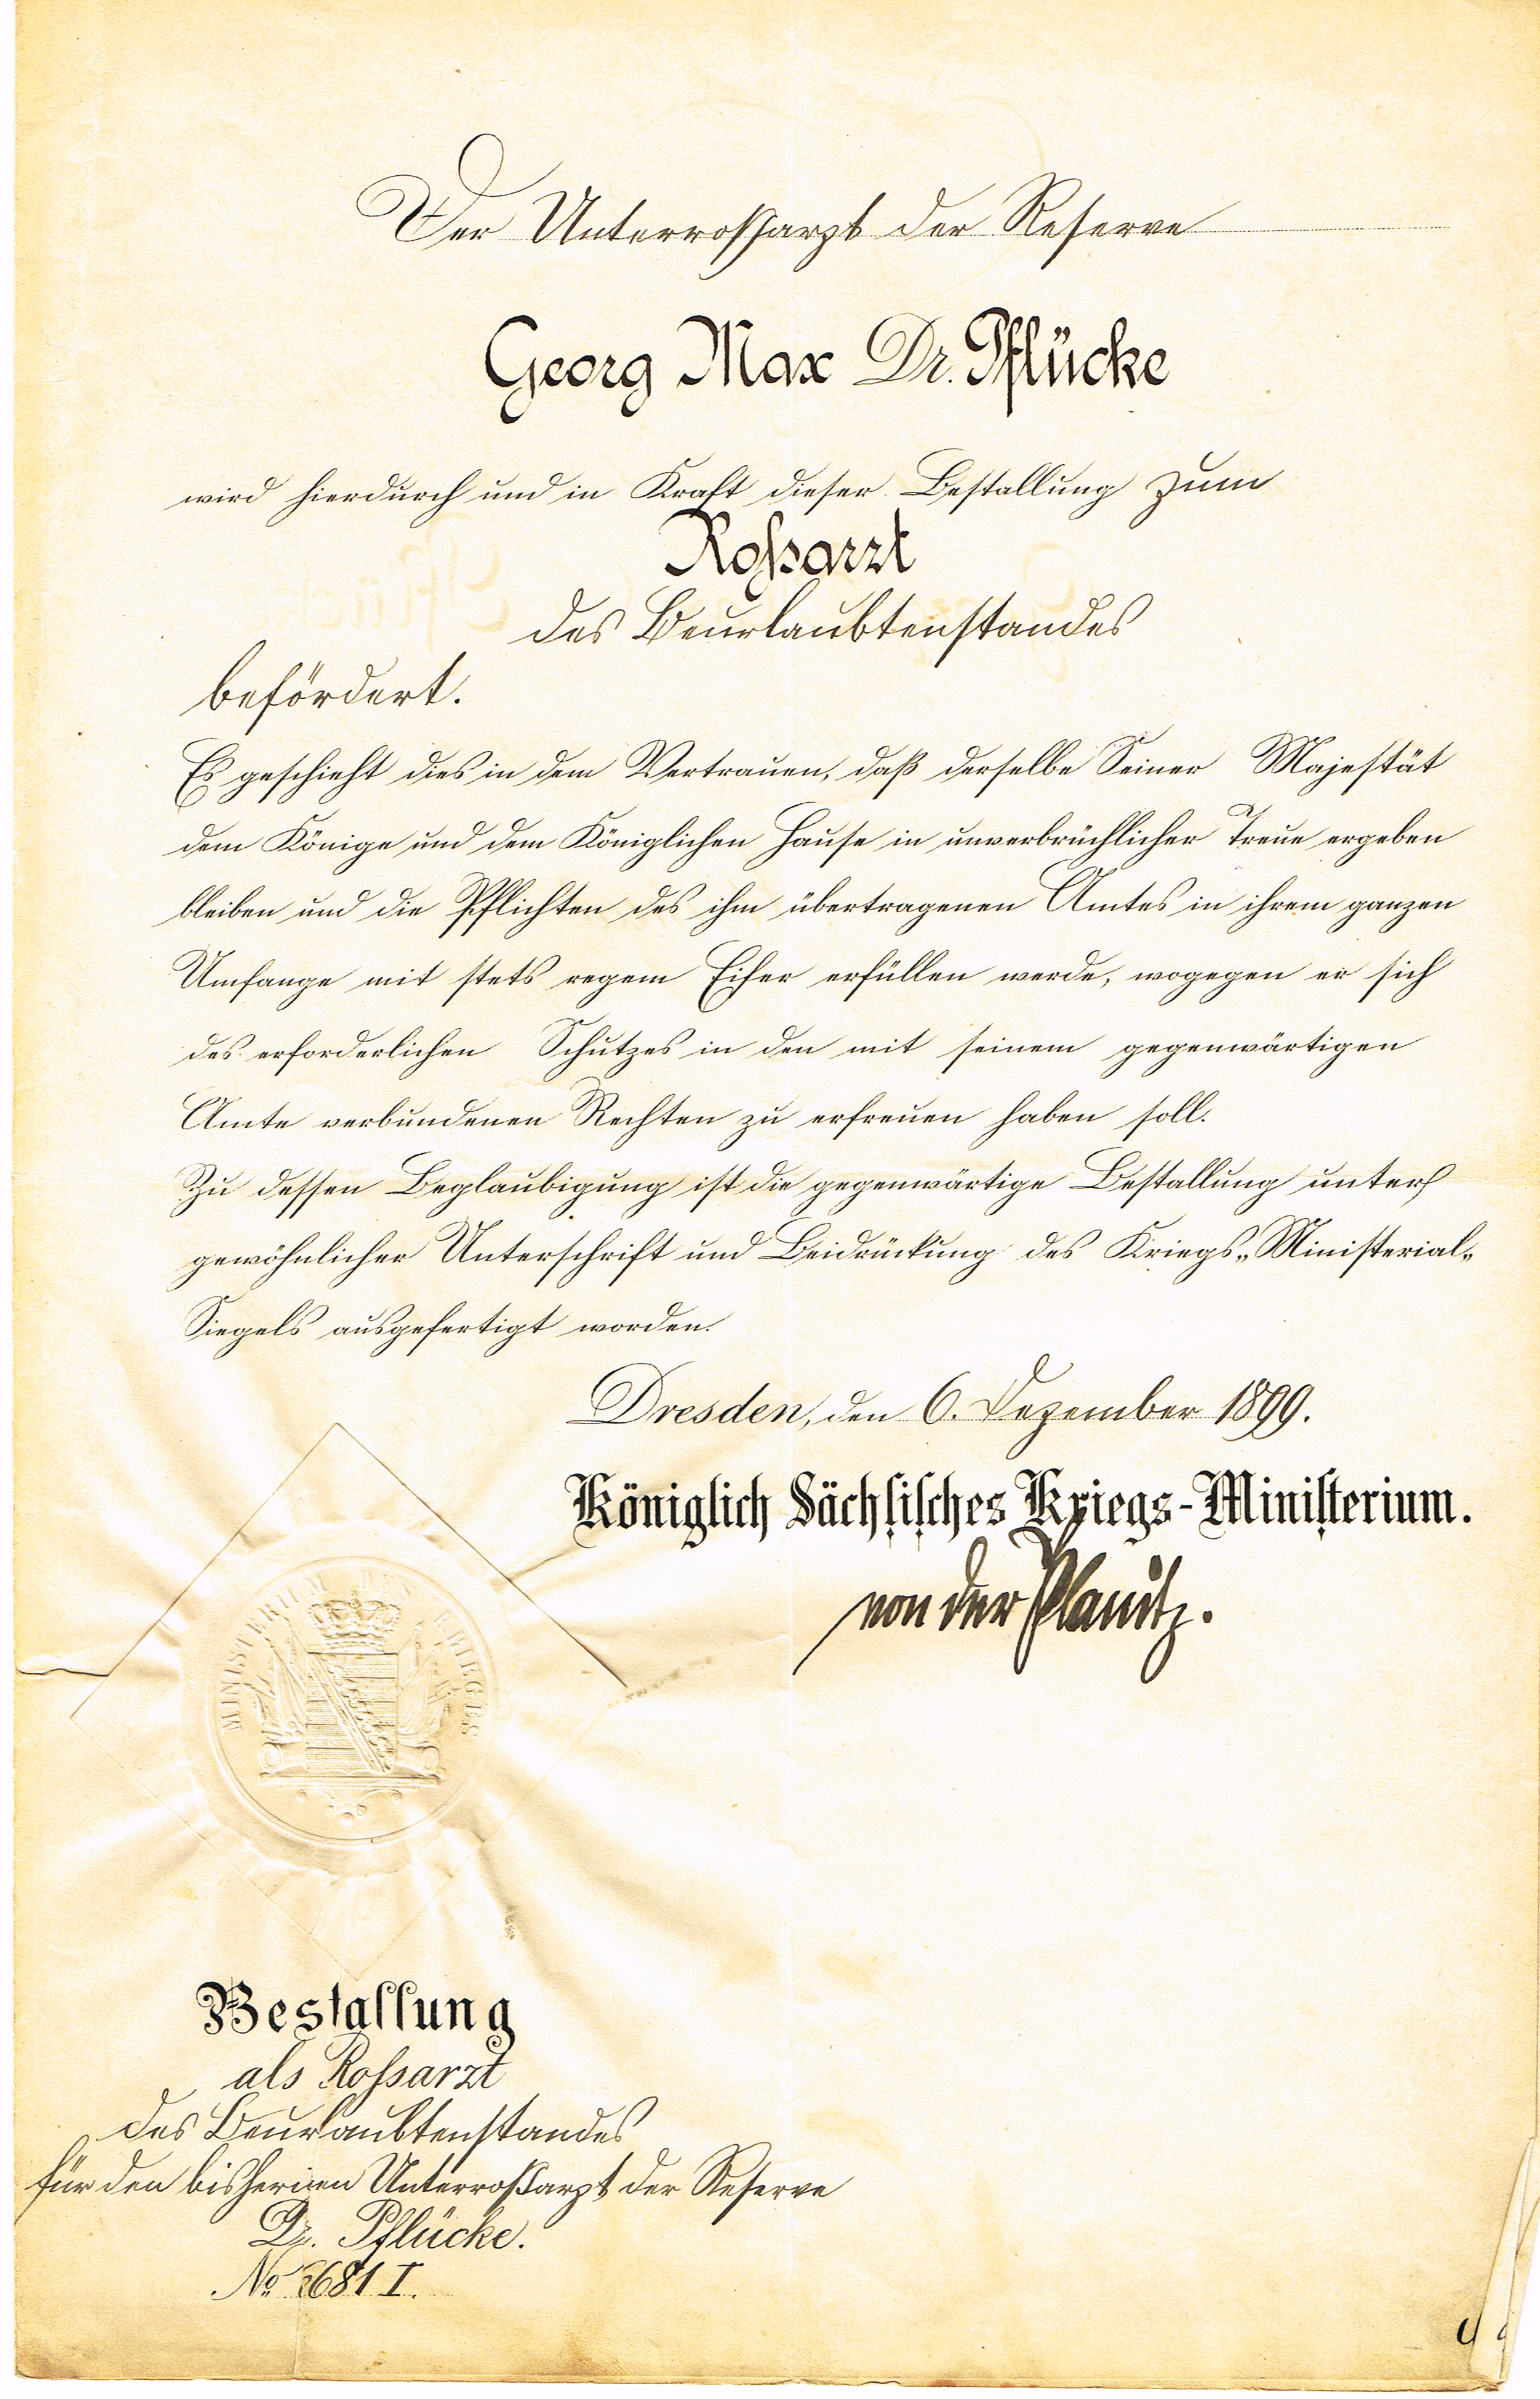 Der Unterroßarzt der Reserve
Georg Max Dr. Pflücke
wird hierdurch und in Kraft dieser Bestallung zum
Roßarzt
des Beurlaubtenstandes
befördert.
Es geschieht dies in dem Vertrauen, daß derselbe Seiner Majestät
dem Könige und dem Königlichen Hause in unverbrüchlicher Treue ergeben
bleiben und die Pflichten des ihm übertragenen Amtes in ihrem ganzen
Umfange mit stets regem Eifer erfüllen werde, wogegen er sich
des erforderlichen Schutzes in den mit seinem gegenwärtigen
Amte verbundenen Rechten zu erfreuen haben soll.
Zu dessen Beglaubigung ist die gegenwärtige Bestallung unter
gewöhnlicher Unterschrift und Beidrückung des Kriegs-Ministerial-
Siegels ausgefertigt worden.
Dresden, den 6. Dezember 1899.
Königlich Sächsisches Kriegs-Ministerium.
von der Planitz.
MINISTERIUM DES KRIEGES
Bestallung
als Roßarzt
des Beurlaubtenstandes
für den bisherigen Unterroßarzt der Reserve
Dr. Pflücke.
No 681 I.